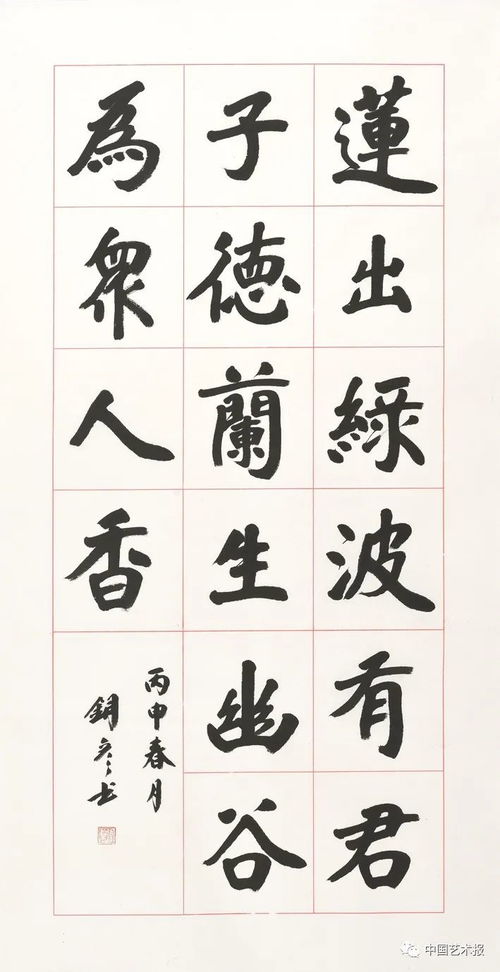 蓮出綠波有君
子德蘭生幽谷
為眾人香
丙申春月
銅彦书
中国艺术报